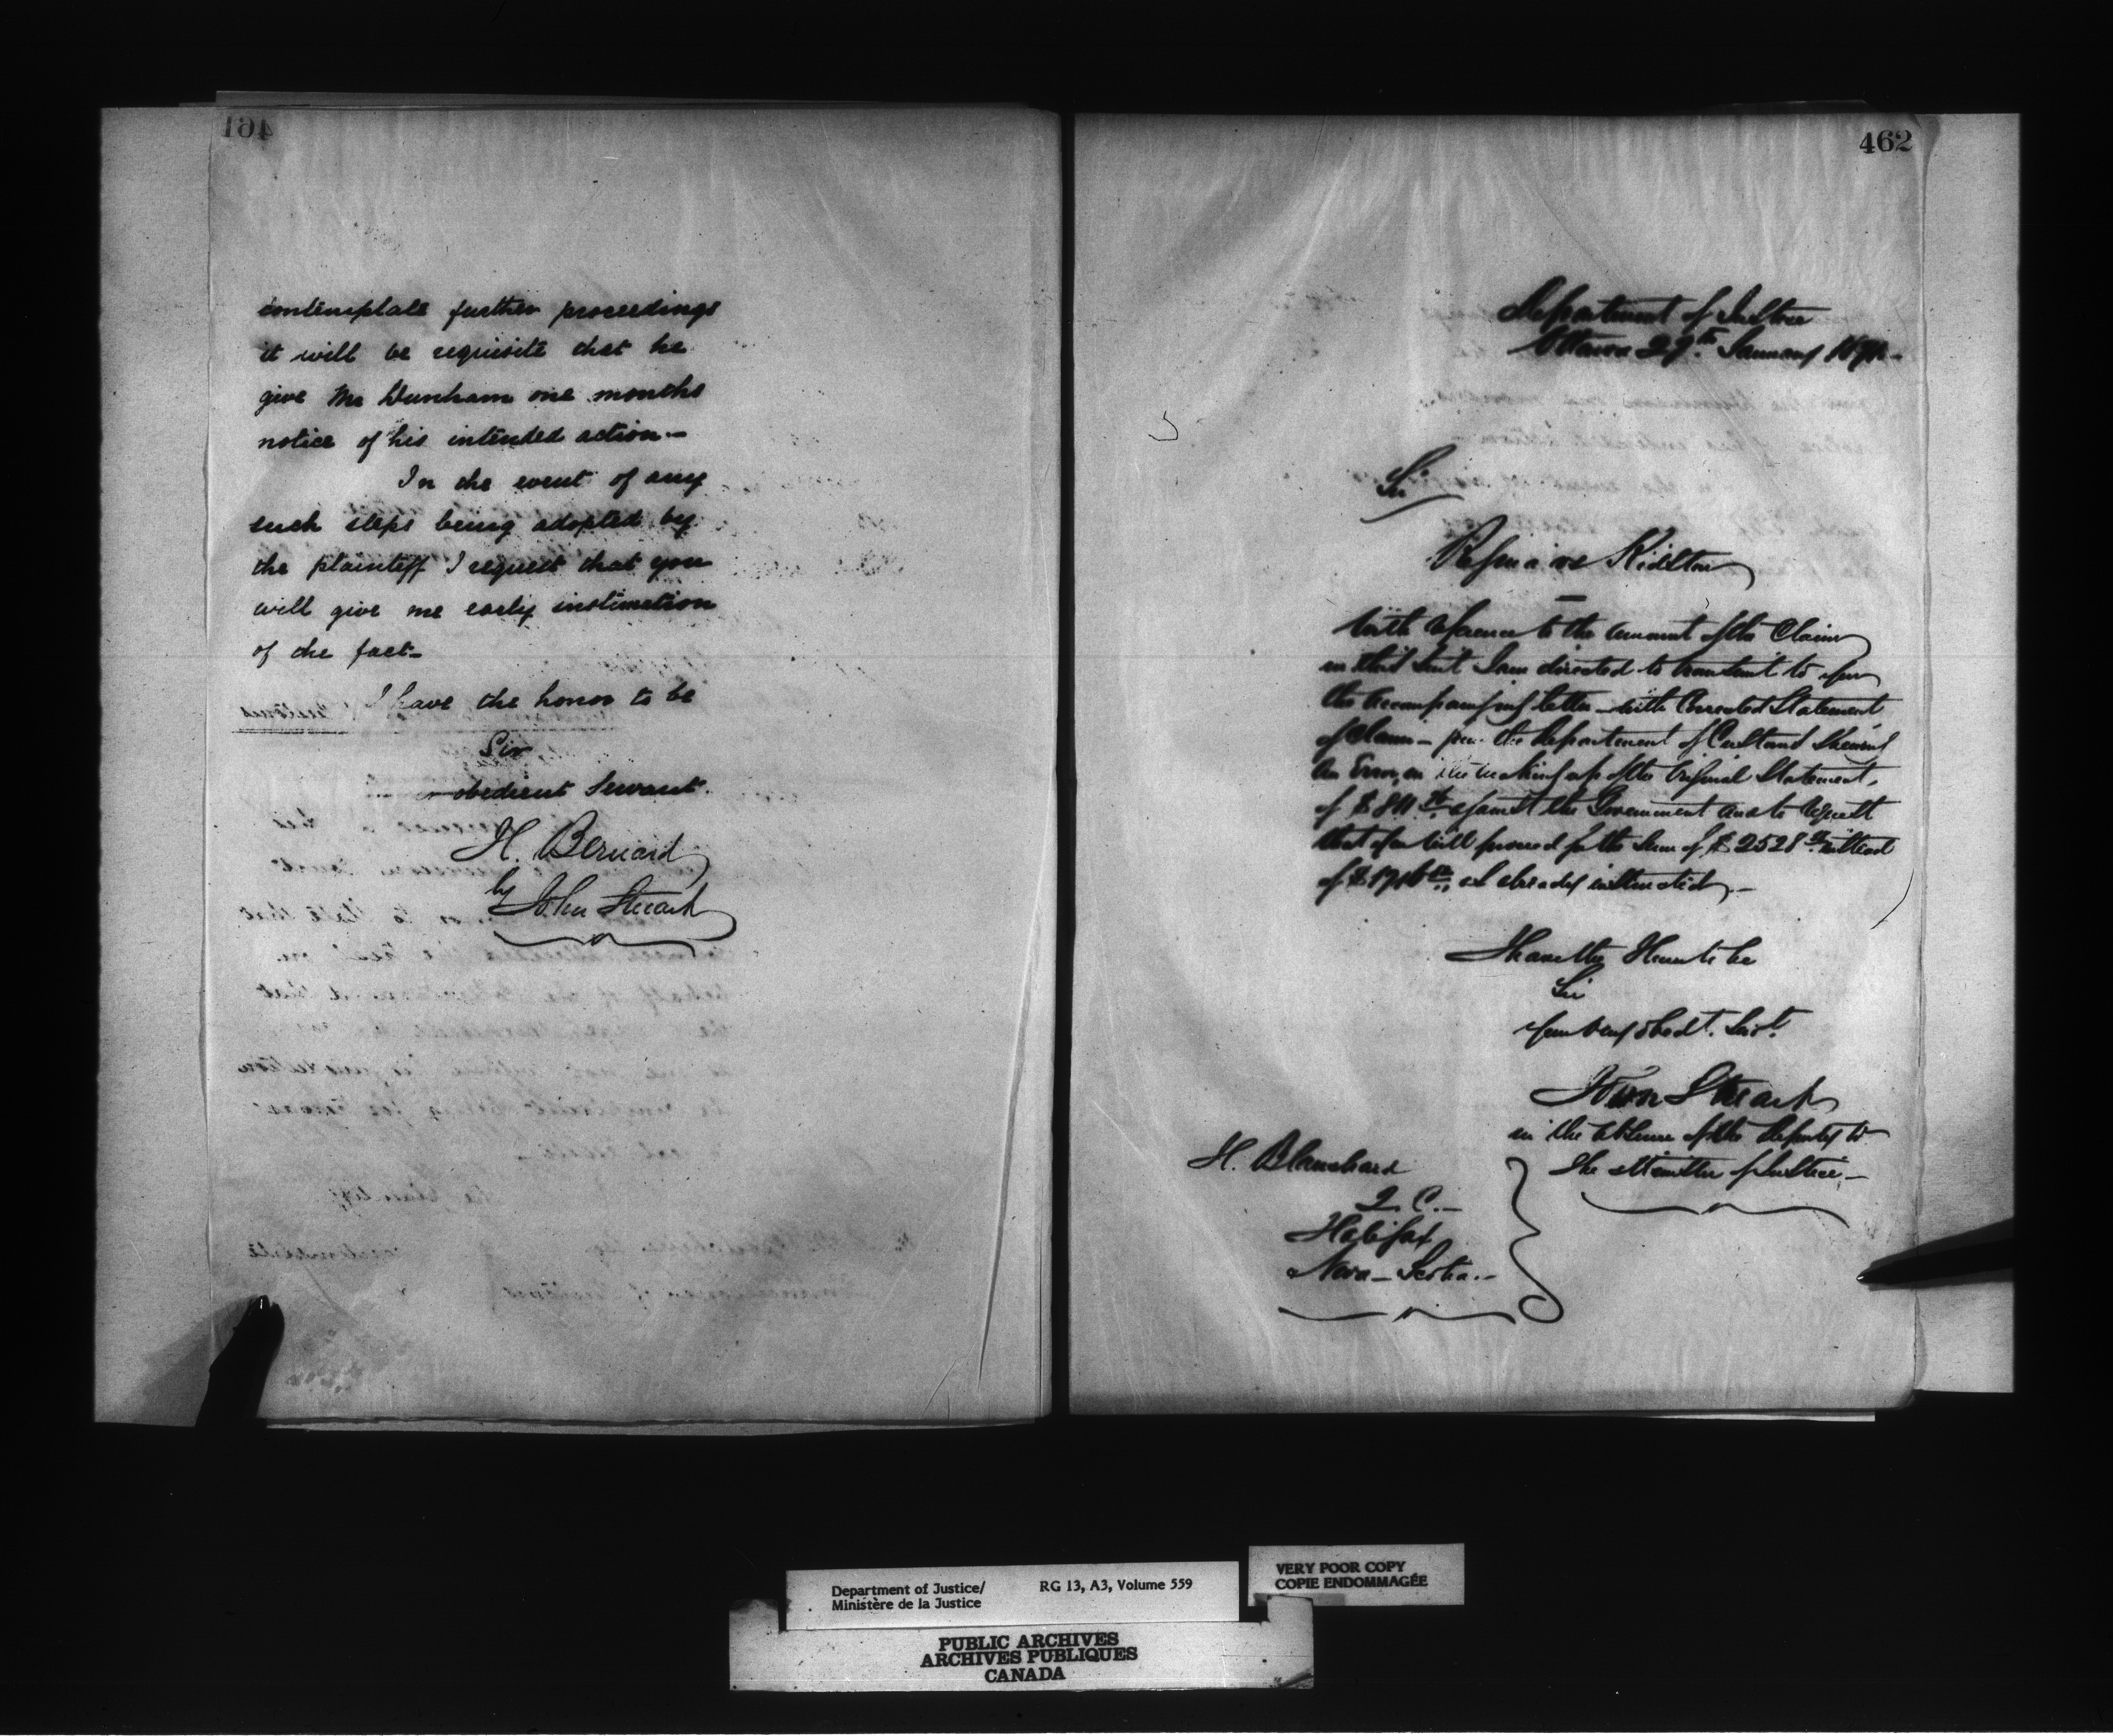 461
contemplate further proceedings
it will be requisite that he
give Mr Dunham one months
notice of his intended action.—
In the event of any
such steps being adopted by
the plaintiff I request that you
will give me early instimation
of the fact—
I have the honor to be
Sir
obedient Servant.
H. Bernard
by
John Steuart
462
Department of Justice
Ottawa 29th January
Sir
Regina vs Kidston
With reference to the amount of the Claim
in this suit I am directed to transmit to you
the accompanying letter — with Corrected Statement
of Claim — from the Department of Customs Shewing
an Error in the making up of the Original Statement,
of against the Government and to request
that you will proceed for the Sum of $2528 instead
of as already instructed.—
I have the Honor to be
Sir
Your very obedt. Servt.
John Steuart
in the absence of the Deputy to
the Minister of Justice—
H. Blanchard
Q.C.—
Halifax
Nova-Scotia.—
Department of Justice/ RG 13, A3, Volume 559
Ministère de la Justice
VERY POOR COPY
COPIE ENDOMMAGÉE
PUBLIC ARCHIVES
ARCHIVES PUBLIQUES
CANADA